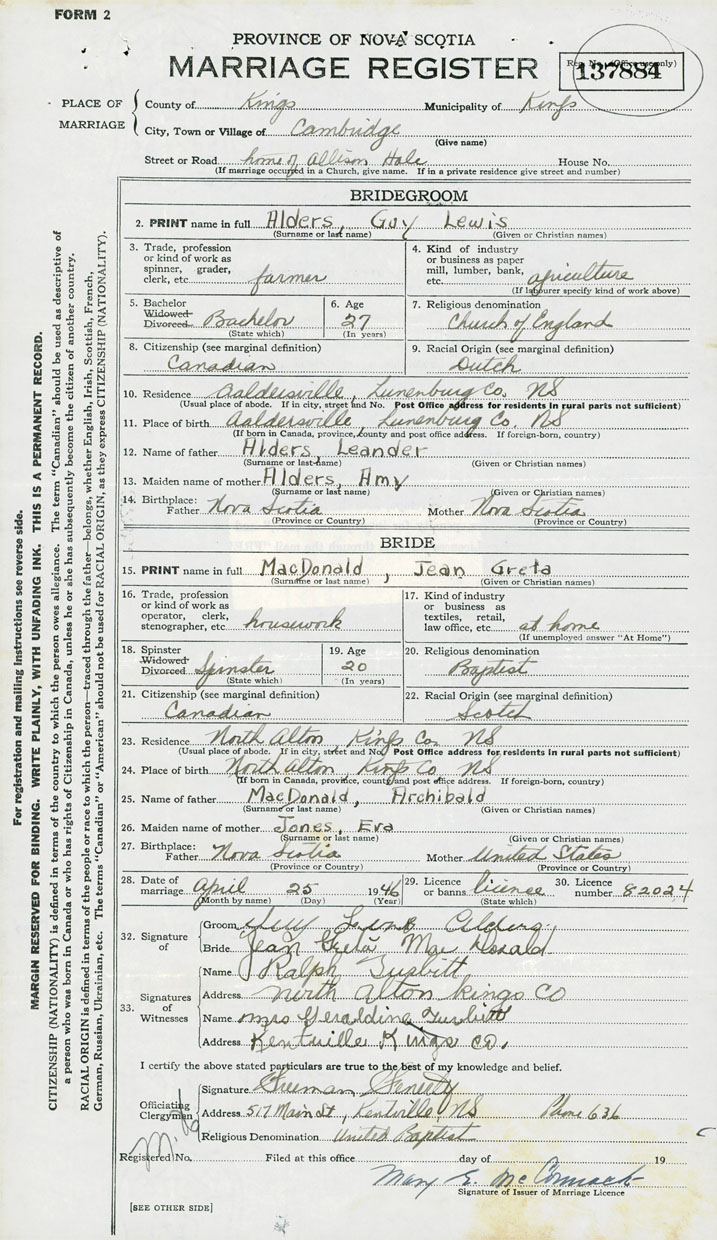 FORM 2
PROVINCE OF NOVA SCOTIA
MARRIAGE REGISTER
Reg. No. (Office use only)
137884
PLACE OF MARRIAGE
County of Kings Municipality of Kings
City, Town or Village of Cambridge
(Give name)
Street or Road home of Allison Hale House No.
(If marriage occurred in a Church, give name. If in a private residence give street and number)
BRIDEGROOM
2. PRINT name in full Alders, Guy Lewis
(Surname or last name) (Given or Christian names)
3. Trade, profession or kind of work as spinner, grader, clerk, etc. farmer
4. Kind of industry or business as paper mill, lumber, bank, etc. agriculture
(If labourer specify kind of work above)
5. Bachelor Widowed Divorced Bachelor
(State which)
6. Age 27
(In years)
7. Religious denomination Church of England
8. Citizenship (see marginal definition) Canadian
9. Racial Origin (see marginal definition) Dutch
10. Residence Aaldersville, Lunenburg Co. NS
(Usual place of abode. If in city, street and No. Post Office address for residents in rural parts not sufficient)
11. Place of birth Aaldersville, Lunenburg Co. NS
(If born in Canada, province, county and post office address. If foreign-born, country)
12. Name of father Alders, Leander
(Surname or last name) (Given or Christian names)
13. Maiden name of mother Alders, Amy
(Surname or last name) (Given or Christian names)
14. Birthplace: Father Nova Scotia Mother Nova Scotia
(Province or Country) (Province or Country)
BRIDE
15. PRINT name in full MacDonald, Jean Greta
(Surname or last name) (Given or Christian names)
16. Trade, profession or kind of work as operator, clerk, stenographer, etc. housework
17. Kind of industry or business as textiles, retail, law office, etc. at home
(If unemployed answer "At Home")
18. Spinster Widowed Divorced Spinster
(State which)
19. Age 20
(In years)
20. Religious denomination Baptist
21. Citizenship (see marginal definition) Canadian
22. Racial Origin (see marginal definition) Scotch
23. Residence North Alton, Kings Co. NS
(Usual place of abode. If in city, street and No. Post Office address for residents in rural parts not sufficient)
24. Place of birth North Alton, Kings Co NS
(If born in Canada, province, county and post office address. If foreign-born, country)
25. Name of father MacDonald, Archibald
(Surname or last name) (Given or Christian names)
26. Maiden name of mother Jones, Eva
(Surname or last name) (Given or Christian names)
27. Birthplace: Father Nova Scotia Mother United States
(Province or Country) (Province or Country)
28. Date of marriage April 25 1946
(Month by name) (Day) (Year)
29. Licence or banns license
(State which)
30. Licence number 82024
32. Signature of
Groom
Bride Jean Greta MacDonald
33. Signatures of Witnesses
Name Ralph
Address North Alton Kings Co
Name Mrs Geraldine
Address Kentville Kings Co.
I certify the above stated particulars are true to the best of my knowledge and belief.
Officiating Clergyman
Signature Freeman
Address 517 Main St, Kentville, NS Phone 636
Religious Denomination United Baptist
Registered No. Filed at this office day of 19
Mary E. McCormack
Signature of Issuer of Marriage Licence
[SEE OTHER SIDE]
For registration and mailing instructions see reverse side.
MARGIN RESERVED FOR BINDING. WRITE PLAINLY, WITH UNFADING INK. THIS IS A PERMANENT RECORD.
CITIZENSHIP (NATIONALITY) is defined in terms of the country to which the person owes allegiance. The term "Canadian" should be used as descriptive of
a person who was born in Canada or who has rights of Citizenship in Canada, unless he or she has subsequently become the citizen of another country.
RACIAL ORIGIN is defined in terms of the people or race to which the person—traced through the father—belongs, whether English, Irish, Scottish, French,
German, Russian, Ukrainian, etc. The terms "Canadian" or "American" should not be used for RACIAL ORIGIN, as they express CITIZENSHIP (NATIONALITY).